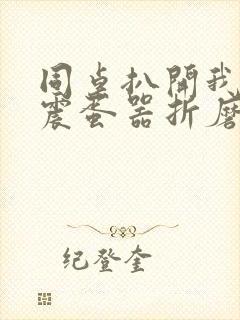 同桌扒開我
震蛋器折磨
纪登奎